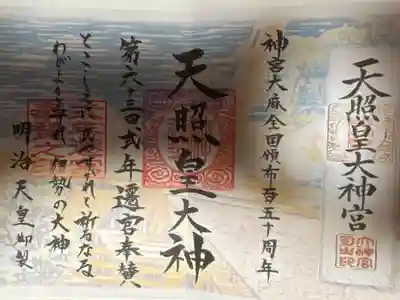 天照皇大神宮
神宮大麻全国頒布百五十周年
天照皇大神
第六十三回式年遷宮奉賛
とこしへに民やすかれと祈るなる
わがよを守れ伊勢の大神
明治天皇御製